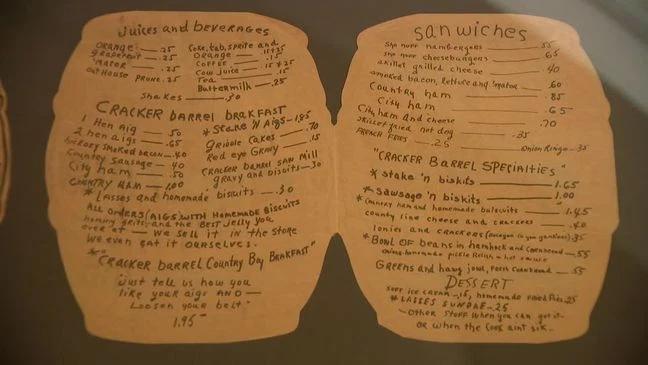 Juices and beverages
ORANGE .25
grapefruit .25
'mater .25
OUT HOUSE PRUNE .25
Coke, tab, sprite and
ORANGE .15 + 25
COFFEE .15
Cow juice 15 + 25
Tea .15
Buttermilk .25
Shakes .50
CRACKER barrel breakfast
1 Hen aig .50
2 hen aigs .65
hickory smoked bacon .40
Country Sausage .40
City ham .50
COUNTRY HAM 1.00
* Stake 'N Aigs 1.85
Griddle Cakes .70
Red eye GRAVY .15
CRACKER barrel SAW Mill
gravy and biscuits .30
* Lasses and homemade biscuits .30
ALL orders (AIGS) WITH HOMEMADE BISCUITS
hominy grits, and the Best Jelly you
ever at — we sell it in the store
We even eat it OURSELVES.
"CRACKER barrel Country Boy BREAKFAST"
Just tell us how you
like your aigs AND —
Loosen your belt
1.95
sanwiches
She nuff hambergers .55
she nuff cheeseburgers .65
skillet grilled cheese 40
smoked bacon, lettuce and 'mator .60
Country ham .85
City ham .65
City ham and cheese .70
skillet fried hot dog .35
FRENCH FRIES .25
Onion Rings .35
"CRACKER BARREL SPECIALTIES"
* stake 'n biskits 1.65
* Sausage 'n biskits 1.00
* Country ham and homemade biskits 1.45
county line cheese and crackers .40
and crackers .35
* BOWL OF beans in hamhock and cornbread .55
onions homemade pickle Relish + hot sauce
Greens and hawg jowl, fresh Cornbread .55
DESSERT
soft ice cream .15, homemade fried Pies .25
* LASSES SUNDAE .25
- Other stuff when you can get it -
or when the Cook aint sik -